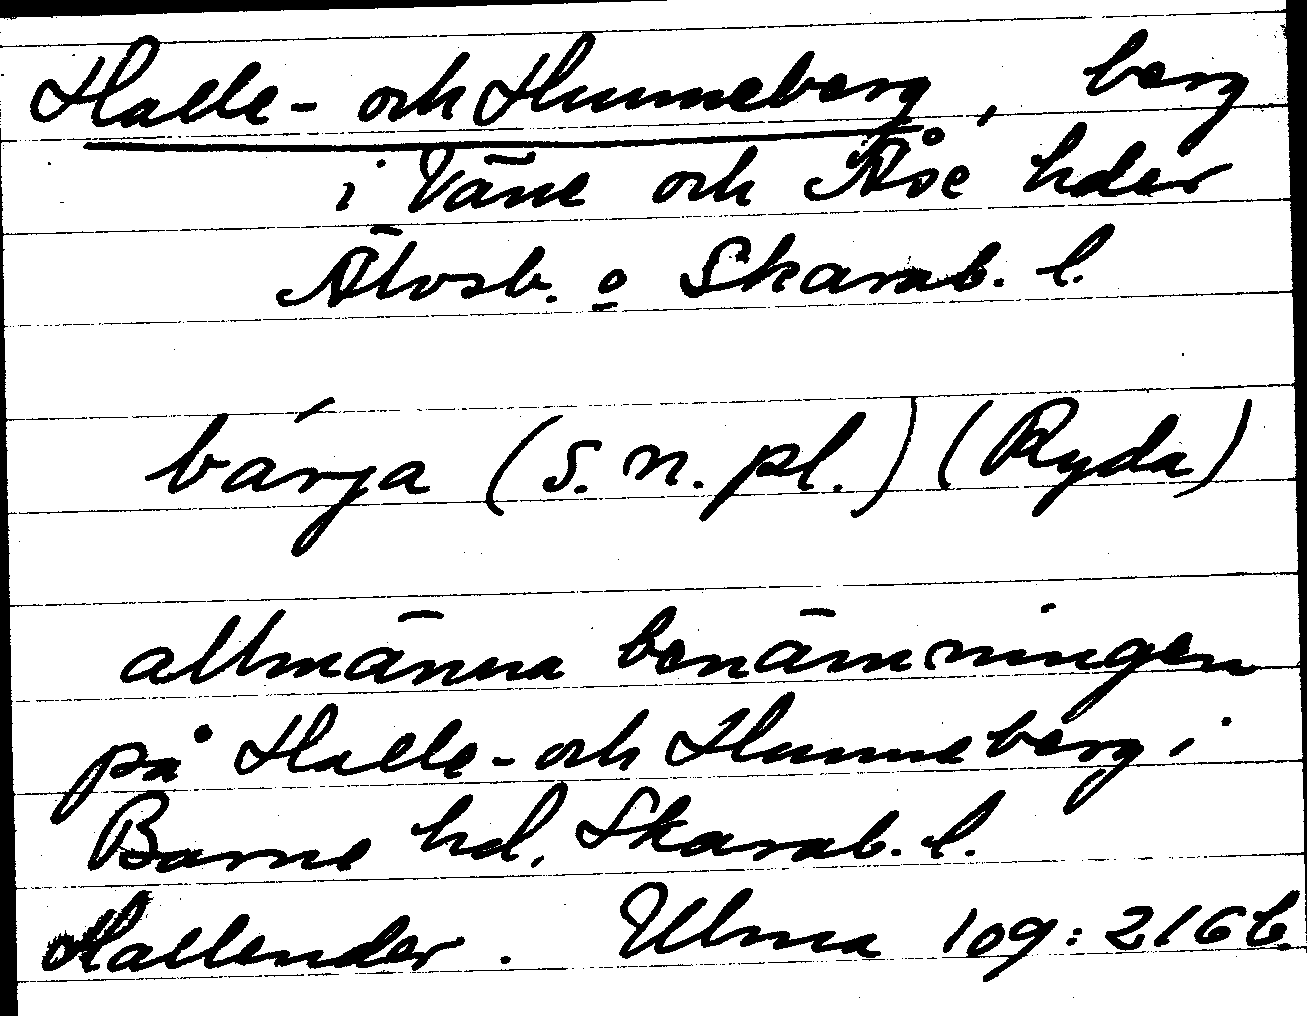 Halle- och Hunneberg, berg
i Väne och Åse hder
Älvsb. o Skarab. l.
bárja (s. n. pl.) (Ryda)
allmänna benämningen
på Halle- och Hunneberg i
Barne hd, Skarab. l.
Hallender. Ulma 109:216 b.